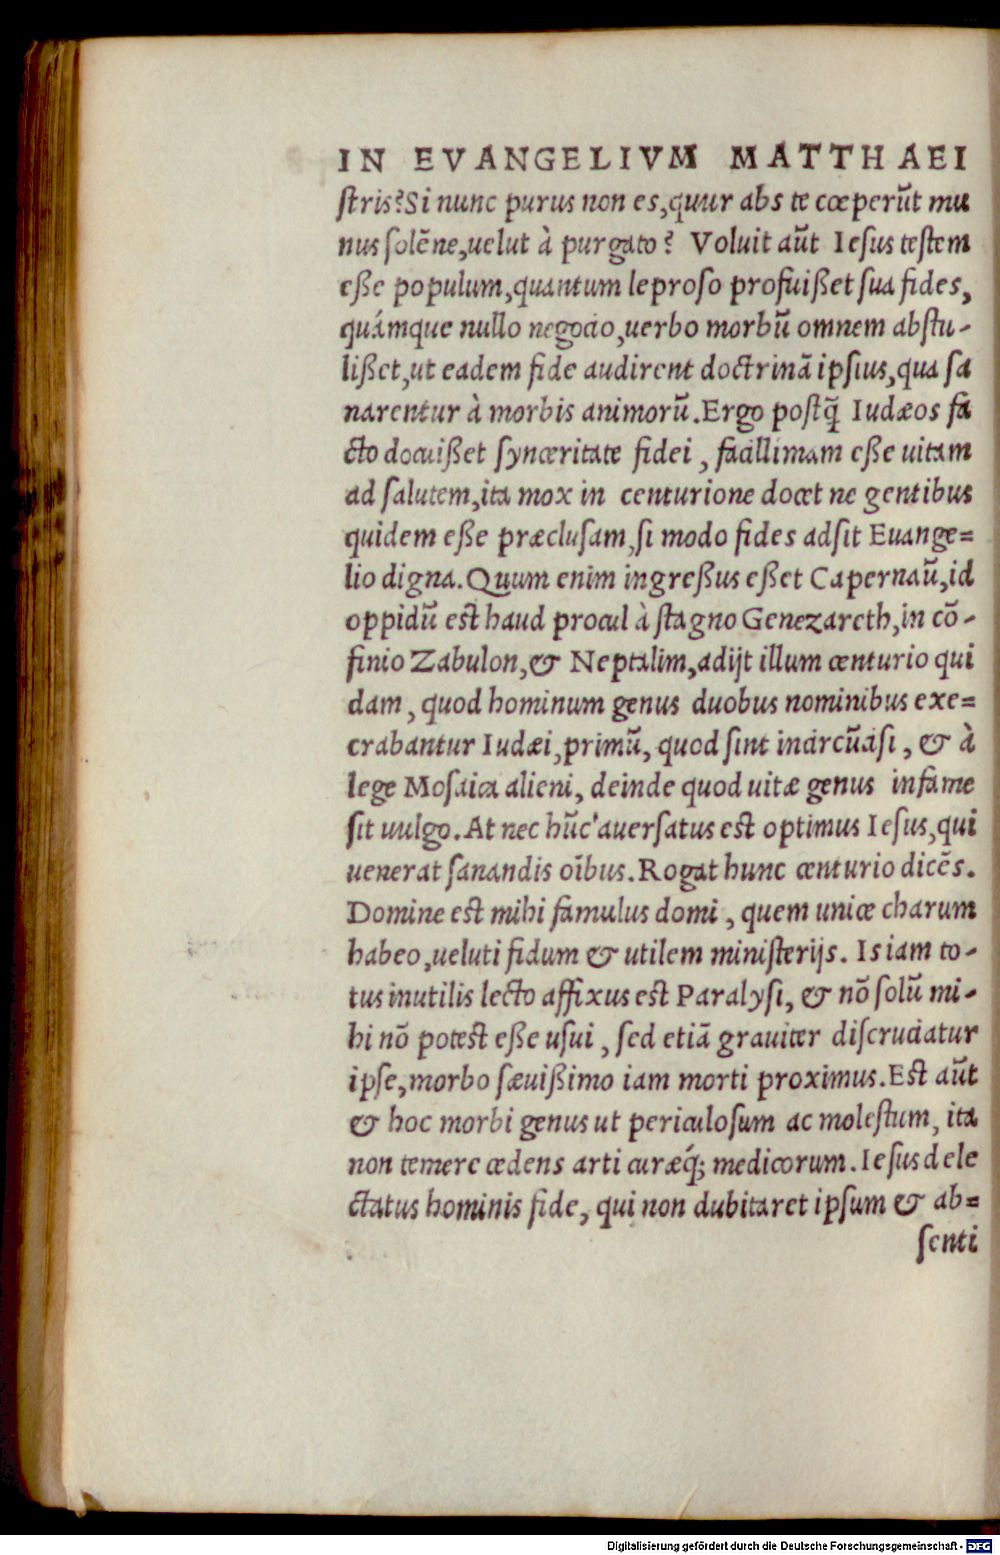 IN EVANGELIVM MATTHAEI
stris? Si nunc purus non es, quur abs te cœperūt mu
nus solēne, uelut à purgato? Voluit aūt Iesus testem
eße populum, quantum leproso profuißet sua fides,
quámque nullo negocio, uerbo morbū omnem abstu-
lißet, ut eadem fide audirent doctrinā ipsius, qua sa
narentur à morbis animorū. Ergo postq̄ Iudæos fa
cto docuißet synceritate fidei, facillimam eße uitam
ad salutem, ita mox in centurione docet ne gentibus
quidem eße præclusam, si modo fides adsit Euange=
lio digna. Quum enim ingreßus eßet Capernaū, id
oppidū est haud procul à stagno Genezareth, in cō-
finio Zabulon, & Neptalim, adijt illum centurio qui
dam, quod hominum genus duobus nominibus exe=
crabantur Iudæi, primū, quod sint incircūcisi, & à
lege Mosaica alieni, deinde quod uitæ genus infame
sit uulgo. At nec hūc auersatus est optimus Iesus, qui
uenerat sanandis oībus. Rogat hunc centurio dicēs.
Domine est mihi famulus domi, quem unice charum
habeo, ueluti fidum & utilem ministerijs. Is iam to-
tus inutilis lecto affixus est Paralysi, & nō solū mi-
hi nō potest eße usui, sed etiā grauiter discruciatur
ipse, morbo sæuißimo iam morti proximus. Est aūt
& hoc morbi genus ut periculosum ac molestum, ita
non temere cedens arti curæq́; medicorum. Iesus dele
ctatus hominis fide, qui non dubitaret ipsum & ab=
senti
Digitalisierung gefördert durch die Deutsche Forschungsgemeinschaft - DFG